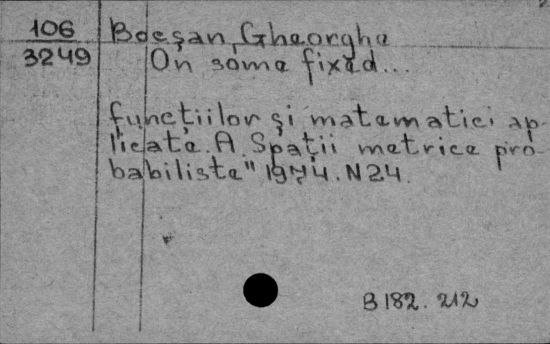 106
3249
Bocşan, Gheorghe
On some fixed...
funcţiilor şi matematici ap-
licate. A. Spaţii metrice pro-
babiliste" 1974. N24.
B182.212